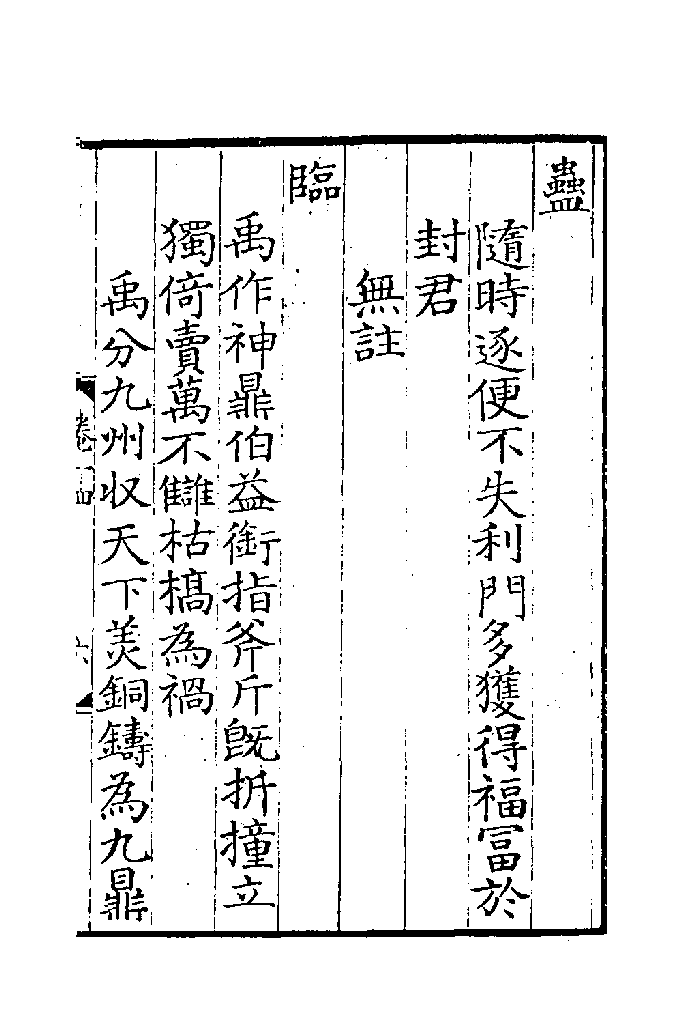 蠱
隨時逐便不失利門多獲得福冨於
封君
無註
臨
禹作神鼎伯益銜指斧斤旣折撞立
獨倚賣萬不讎枯槁為禍
禹分九州収天下美銅鑄為九鼎
卷
六